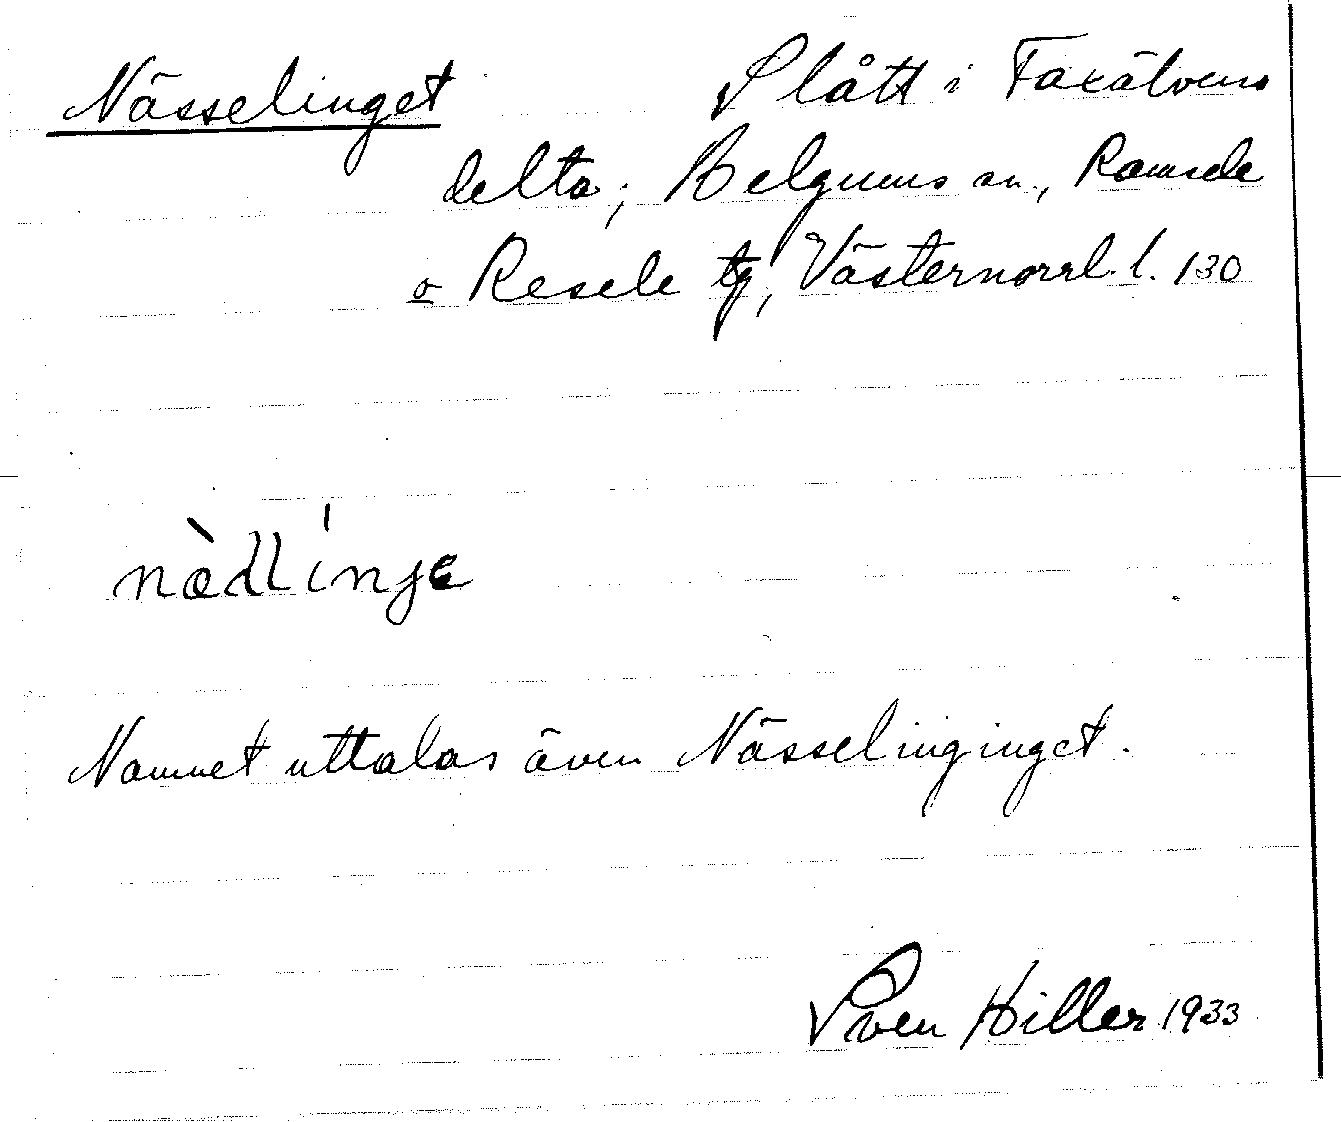 Nässelinget Slått i Faxälvens
delta; Helgums sn., Ramsele
o Resele tg, Västernorrl. l. 130
nædlinje
Namnet uttalas även Nässelinginget.
Sven Hiller 1933